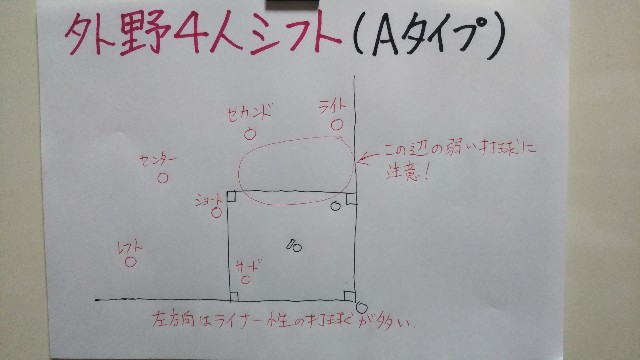 外野4人シフト(Aタイプ)
ライト
セカンド
センター
この辺の弱い打球に
注意!
ショート
レフト
サード
左方向はライナー性の打球が多い.